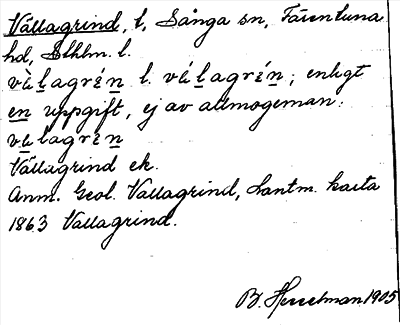 Vallagrind, t, Sånga sn, Färentuna
hd, Sthlm. l.
vàlagrén l. válagrén; enligt
en uppgift, ej av allmogeman:
válagrén
Vallagrind ek.
Anm. Geol. Vallagrind, Lantm. karta
1863 Vallagrind.
B. Hesselman 1905